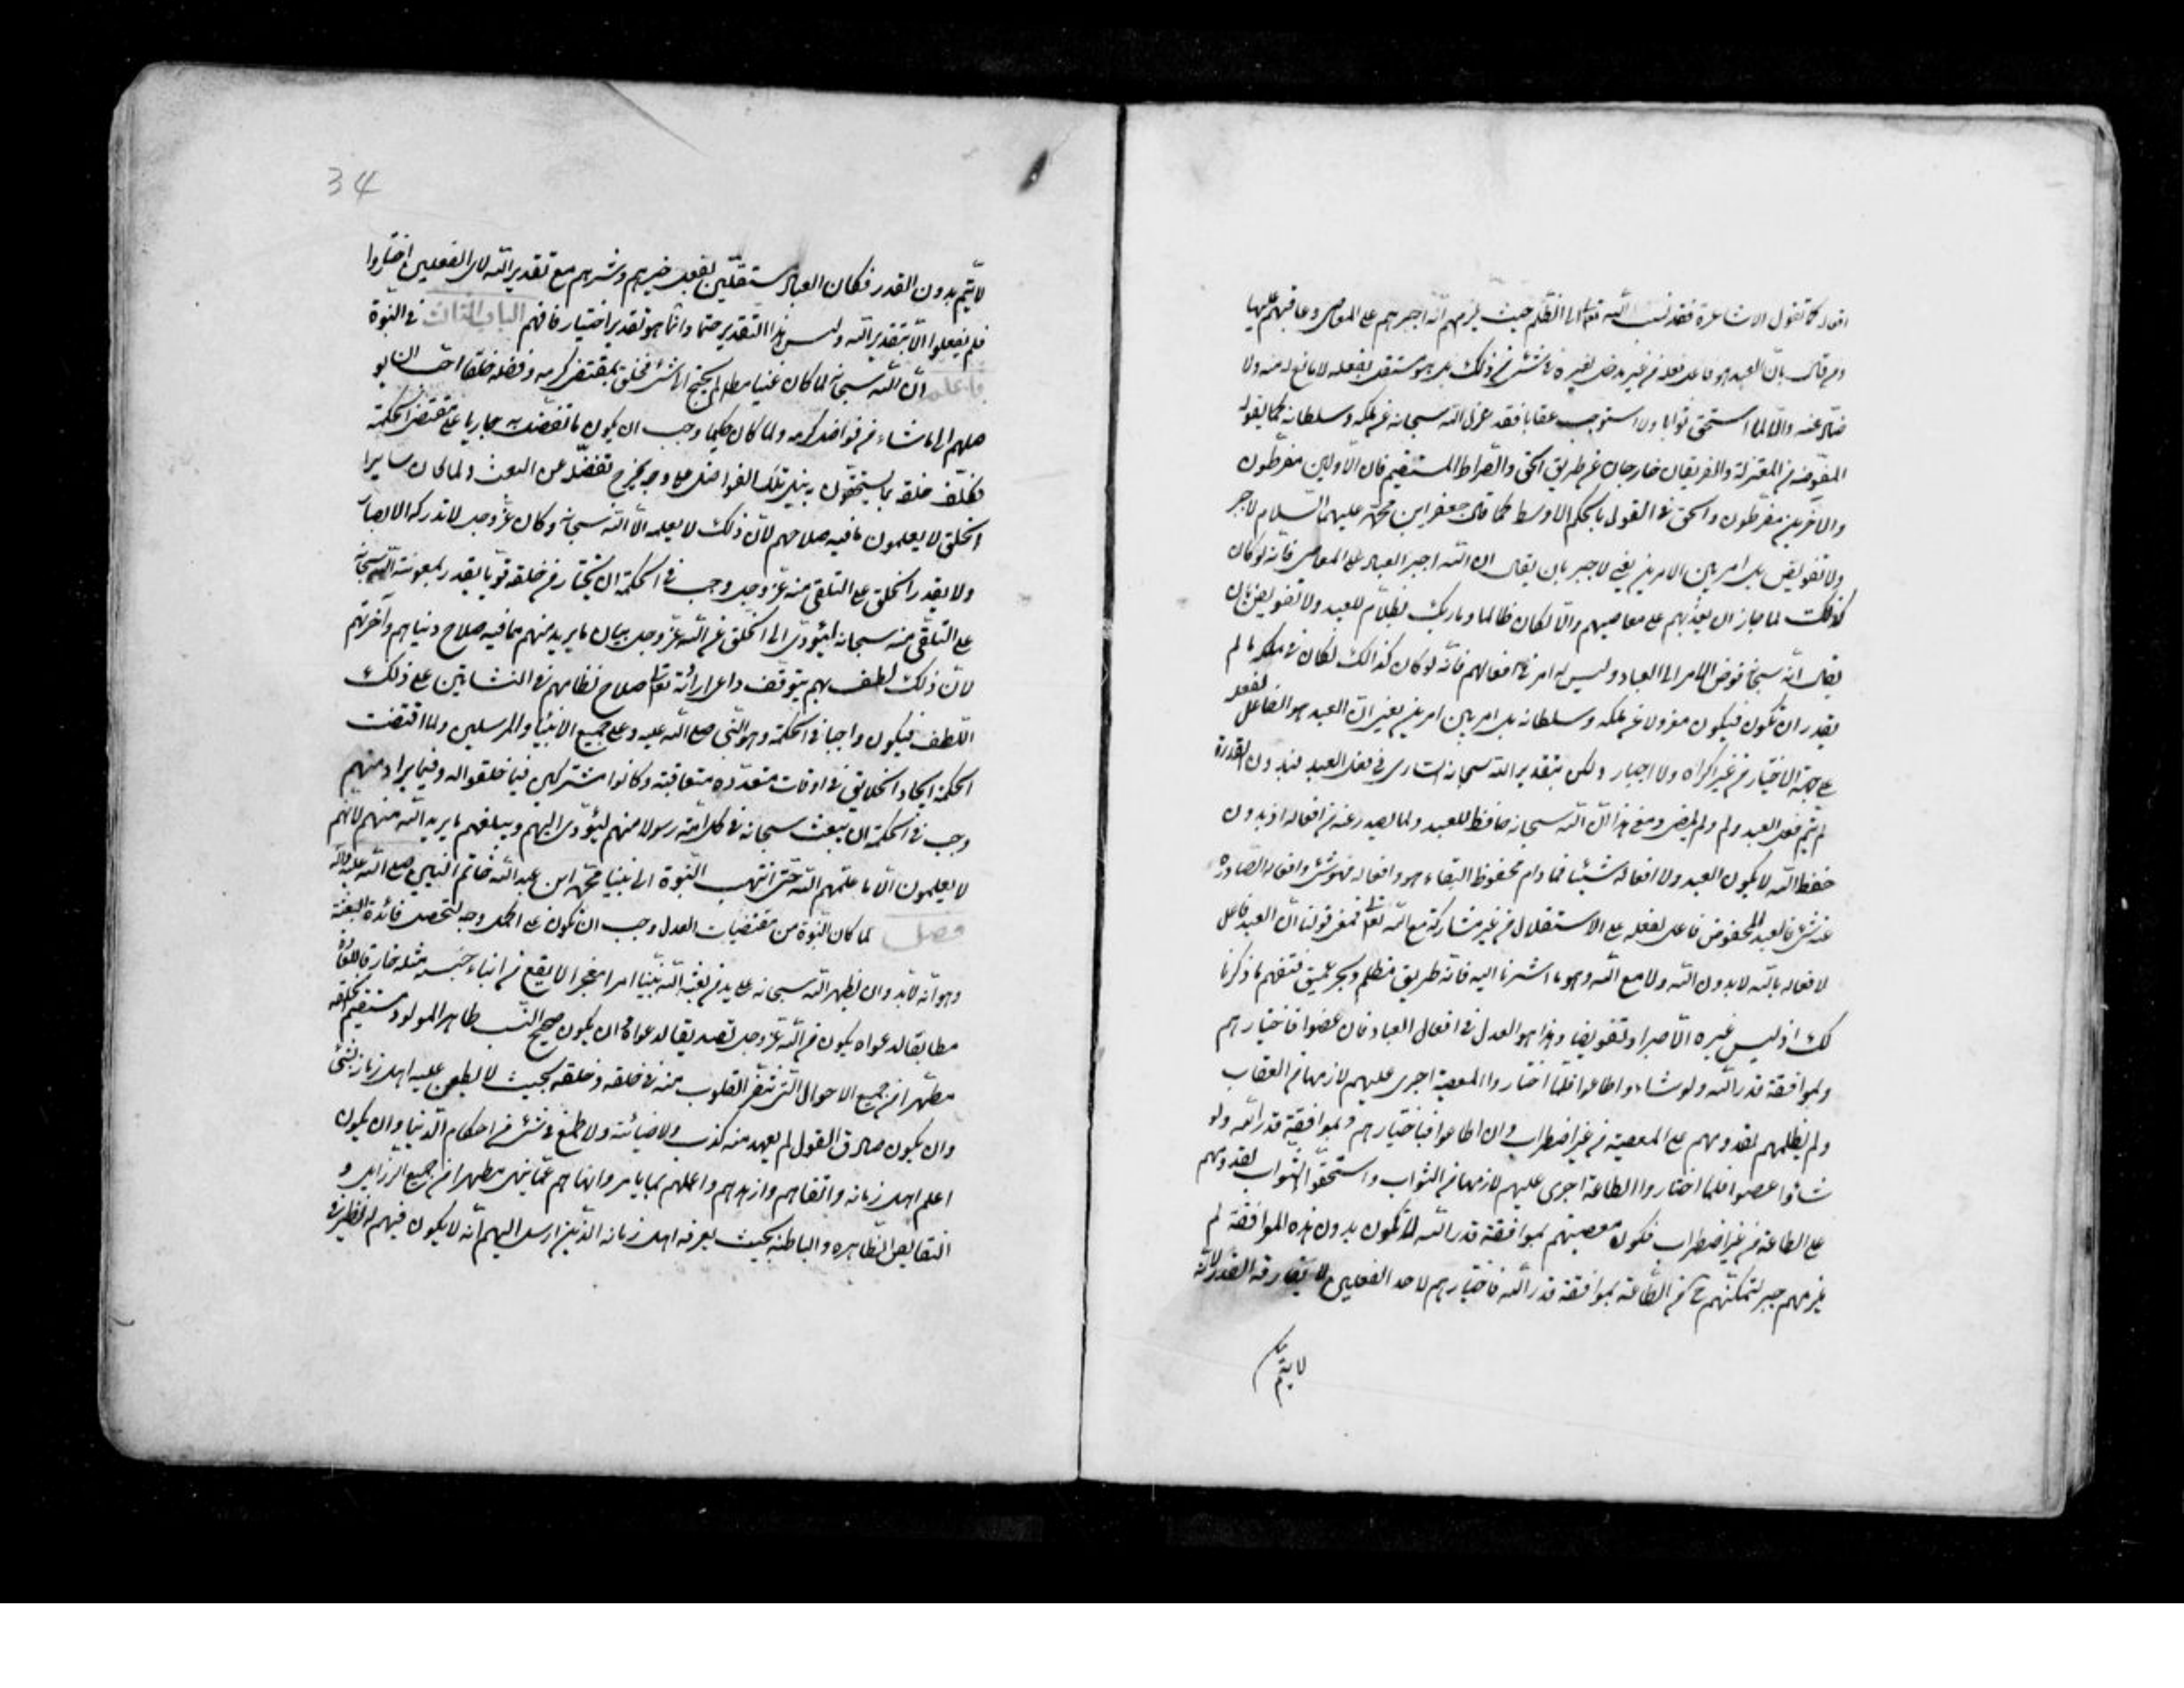 افعاله كما تقول الاشاعرة فقد نسب الله تعالى الى الظلم حيث يلزمهم انه اجبرهم على المعاصي وعاقبهم عليها
ومن قال بان العبد هو فاعل فعله من غير مدخل لغيره في شئ من ذلك بل هو مستقل بفعله لا مانع له منه ولا
صاد عنه والا لما استحق ثوابا ولا استوجب عقابا فقد عزل الله سبحانه عن ملكه وسلطانه كما يقوله
المفوضه من المعتزلة والفريقان خارجان عن طريق الحق والصراط المستقيم فان الاولين مفرطون
والآخرين مفرطون والحق في القول بالحكم الاوسط كما قال جعفر ابن محمد عليهما السلام لا جبر
ولا تفويض بل امر بين الامرين يعني لا جبر بان يقال ان الله اجبر العباد على المعاصي فانه لو كان
كذلك لما جاز ان يعذبهم على معاصيهم والا لكان ظالما وما ربك بظلام للعبيد ولا تفويض بان
يقال انه سبحانه فوض الامر الى العباد وليس له امر في افعالهم فانه لو كان كذالك لكان في ملكه ما لم
يقدر ان يكون فيكون معزولا عن ملكه وسلطانه بل امر بين امرين يعني ان العبد هو الفاعل لفعله
على جهة الاختيار من غير اكراه ولا اجبار ولكن بتقدير الله سبحانه الساري في فعل العبد فبدون القدرة
لم يتم فعل العبد ولم ولم يمض ومع هذا ان الله سبحانه حافظ للعبد ولما يصدر عنه من افعاله اذ بدون
حفظ الله لا يكون العبد ولا افعاله شيئا فما دام محفوظ البقاء هو وافعاله فهو شئ وافعاله الصادرة
عنه شئ فالعبد المحفوظ فاعل لفعله على الاستقلال من غير مشاركة مع الله تعالى فمعنى قولنا ان العبد فاعل
لافعاله بالله لا بدون الله ولا مع الله وهو ما اشرنا اليه فانه طريق مظلم وبحر عميق فتفهم ما ذكرنا
لك اذ ليس غيره الا جبرا وتفويضا وهذا هو العدل في افعال العباد فان عصوا فباختيارهم
ولموافقة قدر الله ولو شاء واطاعوا فلما اختاروا المعصية اجرى عليهم لازمها من العقاب
ولم يظلمهم لقدومهم على المعصية من غير اضطراب وان اطاعوا فباختيارهم ولموافقة قدر الله ولو
شاؤا عصوا فلما اختاروا الطاعة اجرى عليهم لازمها من الثواب واستحقوا الثواب لقدومهم
على الطاعة من غير اضطراب فتكون معصيتهم بموافقة قدر الله لا تكون بدون هذه الموافقة لم
يلزمهم جبر لتمكنهم من الطاعة بموافقة قدر الله فاختيارهم لاحد الفعلين لا يفارقه القدر لانه
لا يتم
34
لا يتم بدون القدر فكان العباد مستقلين بفعل خيرهم وشرهم مع تقدير الله لاى الفعلين اختاروا
فلم يفعلوا الا بتقدير الله وليس هذا التقدير حتما وانما هو تقدير اختيار فافهم الباب الثالث في النبوة
فاعلم ان الله سبحانه لما كان غنيا مطلقا لم يحتج الى شئ فخلق بمقتضى كرمه وفضله خلقا احب ان
يوصلهم الى ما شاء من فواضل كرمه ولما كان حكيما وجب ان يكون ما تفضل به جاريا على مقتضى الحكمة
فكلف خلقه بما يستحقون به نيل تلك الفواضل على وجه يخرج تفضله عن العبث ولما كان سائر
الخلق لا يعلمون ما فيه صلاحهم لان ذلك لا يعلمه الا الله سبحانه وكان عز وجل لا تدركه الابصار
ولا يقدر الخلق على التلقي منه عز وجل وجب في الحكمة ان يختار من خلقه قويا يقدر بمعونة الله سبحانه
على التلقي منه سبحانه ليؤدى الى الخلق عن الله عز وجل بيان ما يريد منهم مما فيه صلاح دنياهم وآخرتهم
لان ذلك لطف بهم يتوقف صلاح نظامهم في النشاتين على ذلك
اللطف فيكون واجبا في الحكمة وهو النبي صلى الله عليه وعلى جميع الانبياء والمرسلين ولما اقتضت
الحكمة ايجاد الخلايق في اوقات متعددة متعاقبة وكانوا مشتركين فيما خلقوا له وفيما يراد منهم
وجب في الحكمة ان يبعث سبحانه في كل امة رسولا منهم ليؤدى اليهم ويبلغهم ما يريد الله منهم لانهم
لا يعلمون الا ما علمهم الله حتى انتهت النبوة الى نبينا محمد ابن عبد الله خاتم النبيين صلى الله عليه وآله
فصل لما كان النبوة من مقتضيات العدل وجب ان يكون على اكمل وجه لتحصل فائدة البعثة
وهو انه لا بد وان يظهر الله سبحانه على يد من بعثه الله نبيا امرا معجزا لا يقع من ابناء جنسه مثله خارقا للعادة
مطابقا لدعواه يكون من الله عز وجل تصديقا لدعواه وان يكون صحيح النسب طاهر المولد مستقيم الخلقة
مطهرا من جميع الاحوال التي تنفر القلوب منه في خلقه وخلقه بحيث لا يطعن عليه اهل زمانه بشئ
وان يكون صادق القول لم يعهد منه كذب ولا خيانة ولا طمع في شئ من احكام الدنيا وان يكون
اعلم اهل زمانه واتقاهم وازهدهم واعملهم بما يامر وانهاهم عما ينهى مطهرا من جميع الرزايل و
النقايص الظاهره والباطنه بحيث يعرفه اهل زمانه الذين ارسل اليهم انه لا يكون فيهم له نظير في